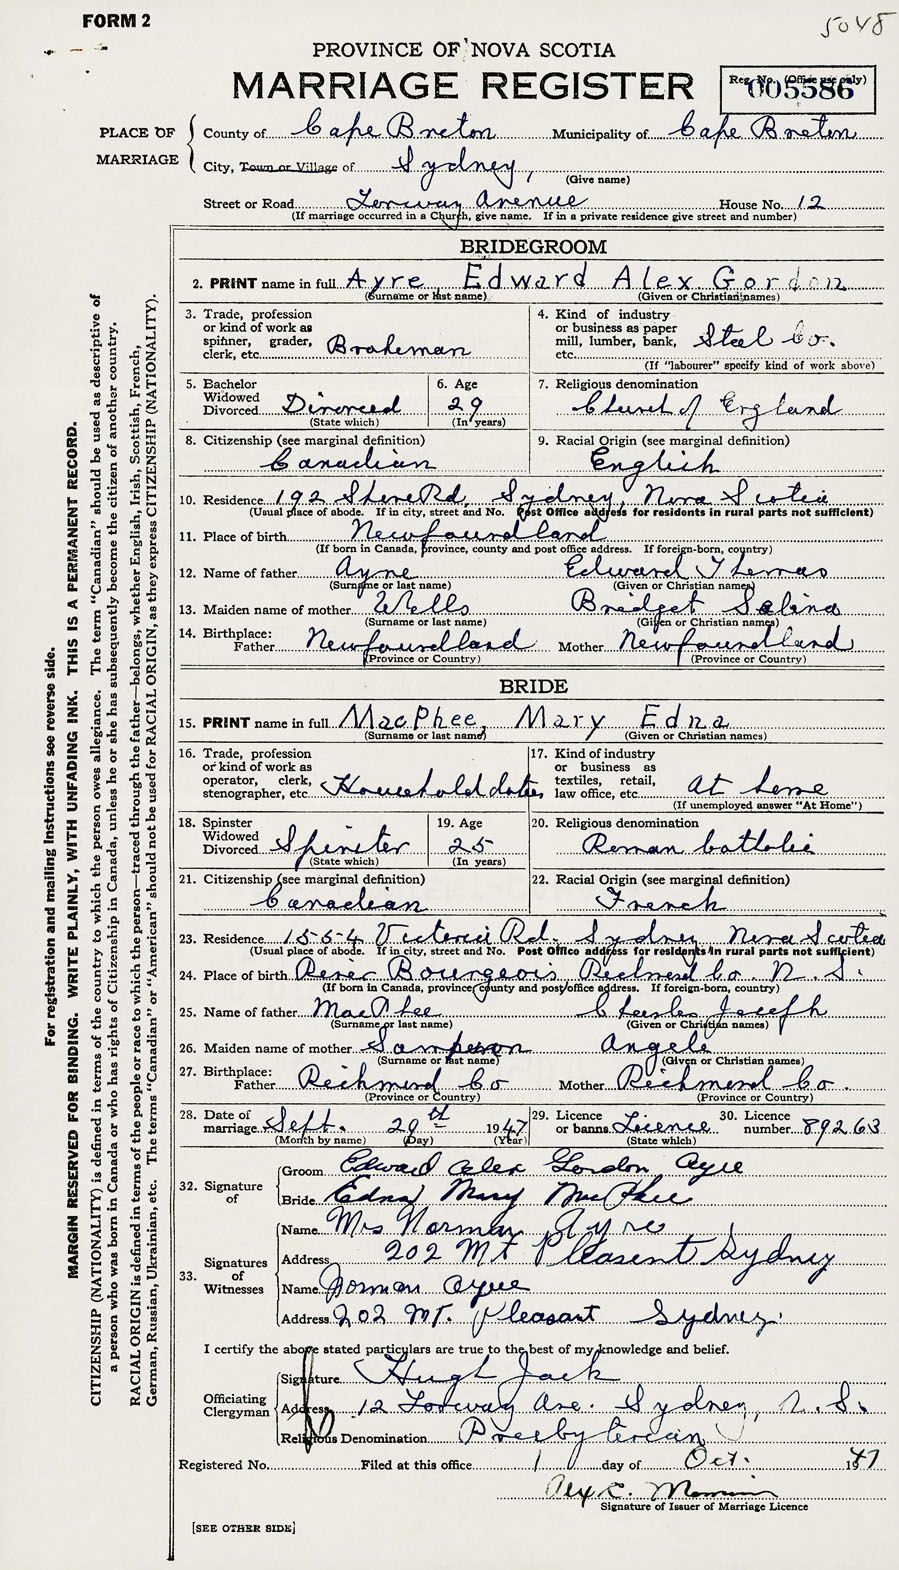 FORM 2
5048
PROVINCE OF NOVA SCOTIA
MARRIAGE REGISTER
Reg. No. (Office use only)
005586
PLACE OF MARRIAGE
County of Cape Breton Municipality of Cape Breton
City, Town or Village of Sydney,
(Give name)
Street or Road Lorway Avenue House No. 12
(If marriage occurred in a Church, give name. If in a private residence give street and number)
BRIDEGROOM
2. PRINT name in full Ayre, Edward Alex Gordon
(Surname or last name) (Given or Christian names)
3. Trade, profession or kind of work as spinner, grader, clerk, etc. Brakeman
4. Kind of industry or business as paper mill, lumber, bank, etc. Steel Co.
(If "labourer" specify kind of work above)
5. Bachelor Widowed Divorced Divorced
(State which)
6. Age 29
(In years)
7. Religious denomination Church of England
8. Citizenship (see marginal definition) Canadian
9. Racial Origin (see marginal definition) English
10. Residence 192 Shore Rd, Sydney, Nova Scotia
(Usual place of abode. If in city, street and No. Post Office address for residents in rural parts not sufficient)
11. Place of birth Newfoundland
(If born in Canada, province, county and post office address. If foreign-born, country)
12. Name of father Ayre Edward Thomas
(Surname or last name) (Given or Christian names)
13. Maiden name of mother Wells Bridget Salina
(Surname or last name) (Given or Christian names)
14. Birthplace: Father Newfoundland Mother Newfoundland
(Province or Country) (Province or Country)
BRIDE
15. PRINT name in full MacPhee, Mary Edna
(Surname or last name) (Given or Christian names)
16. Trade, profession or kind of work as operator, clerk, stenographer, etc. Household duties
17. Kind of industry or business as textiles, retail, law office, etc. At home
(If unemployed answer "At Home")
18. Spinster Widowed Divorced Spinster
(State which)
19. Age 25
(In years)
20. Religious denomination Roman Catholic
21. Citizenship (see marginal definition) Canadian
22. Racial Origin (see marginal definition) French
23. Residence 1554 Victoria Rd. Sydney Nova Scotia
(Usual place of abode. If in city, street and No. Post Office address for residents in rural parts not sufficient)
24. Place of birth River Bourgeois Richmond Co. N. S.
(If born in Canada, province county and post office address. If foreign-born, country)
25. Name of father MacPhee Charles Joseph
(Surname or last name) (Given or Christian names)
26. Maiden name of mother Sampson Angele
(Surname or last name) (Given or Christian names)
27. Birthplace: Father Richmond Co Mother Richmond Co.
(Province or Country) (Province or Country)
28. Date of marriage Sept. 29th 1947
(Month by name) (Day) (Year)
29. Licence or banns Licence
(State which)
30. Licence number 89263
32. Signature of
Groom Edward Alex Gordon Ayre
Bride Edna Mary MacPhee
33. Signatures of Witnesses
Name Mrs Norman Ayre
Address 202 Mt Pleasent Sydney
Name Norman Ayre
Address 202 Mt. Pleasant Sydney.
I certify the above stated particulars are true to the best of my knowledge and belief.
Officiating Clergyman
Signature Hugh Jack
Address 12 Lorway Ave. Sydney, N. S.
Religious Denomination Presbyterian
Registered No. Filed at this office 1 day of Oct. 1947
Alex C.
Signature of Issuer of Marriage Licence
[SEE OTHER SIDE]
For registration and mailing instructions see reverse side.
MARGIN RESERVED FOR BINDING. WRITE PLAINLY, WITH UNFADING INK. THIS IS A PERMANENT RECORD.
CITIZENSHIP (NATIONALITY) is defined in terms of the country to which the person owes allegiance. The term "Canadian" should be used as descriptive of
a person who was born in Canada or who has rights of Citizenship in Canada, unless he or she has subsequently become the citizen of another country.
RACIAL ORIGIN is defined in terms of the people or race to which the person—traced through the father—belongs, whether English, Irish, Scottish, French,
German, Russian, Ukrainian, etc. The terms "Canadian" or "American" should not be used for RACIAL ORIGIN, as they express CITIZENSHIP (NATIONALITY).